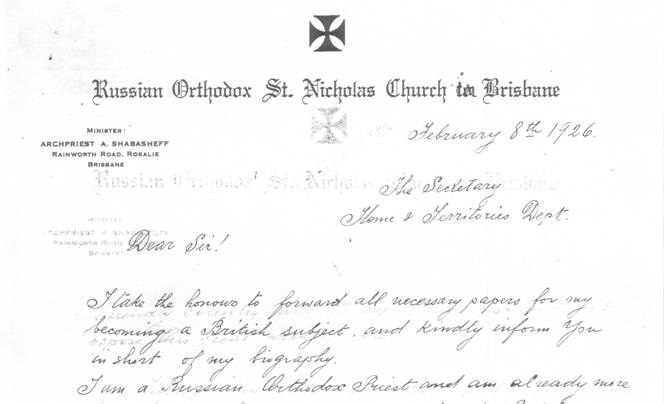 Russian Orthodox St. Nicholas Church in Brisbane
February 8th 1926.
MINISTER:
ARCHPRIEST A. SHABASHEFF
RAINWORTH ROAD, ROSALIE
BRISBANE
The Secretary
Home & Territories Dept.
Dear Sir!
I take the honour to forward all necessary papers for my
becoming a British subject, and kindly inform You
in short of my biography.
I am a Russian Orthodox Priest and am already more